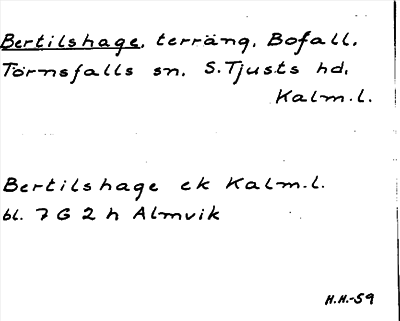 Bertilshage, terräng, Bofall.
Törnsfalls sn. S. Tjusts hd,
Kalm.l.
Bertilshage ek Kalm.l.
bl. 7 G 2 h Almvik
H.H.-59